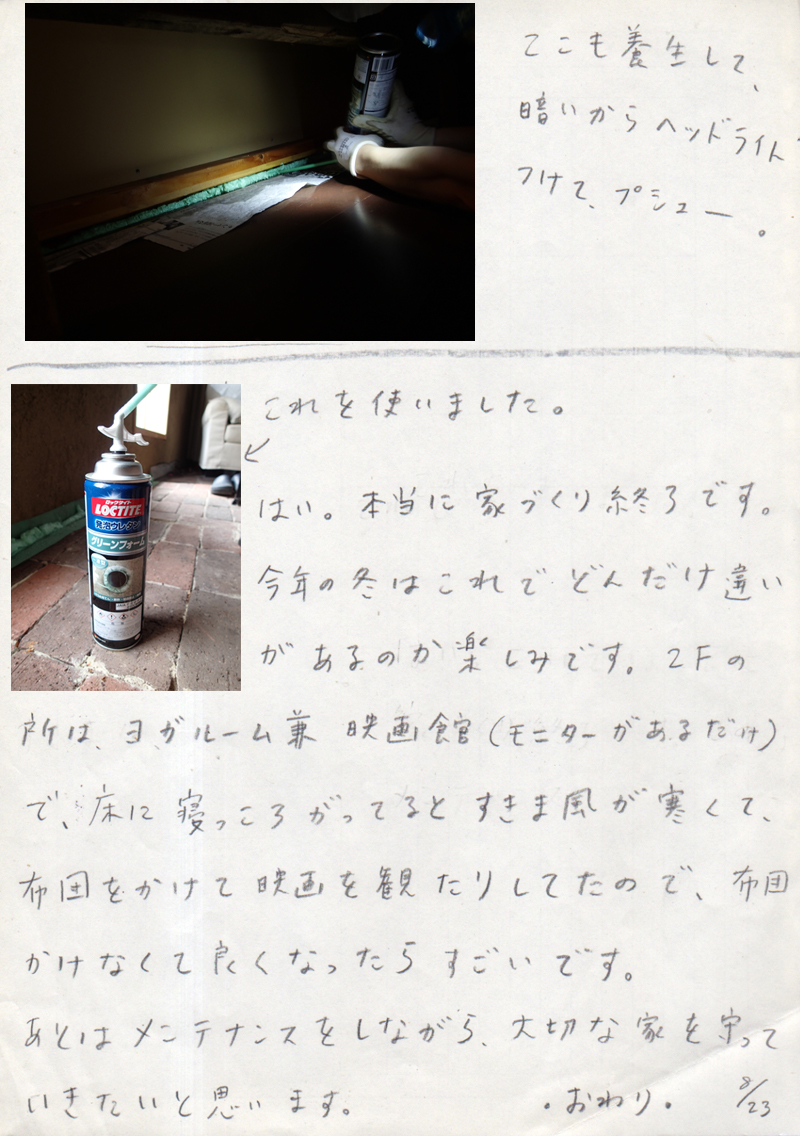 ここも養生して、
暗いからヘッドライト
つけて、プシュー。
これを使いました。
↙
ロックタイト
LOCTITE
発泡ウレタン
グリーンフォーム
はい。本当に家づくり終了です。
今年の冬はこれでどんだけ違い
があるのか楽しみです。2Fの
所は、ヨガルーム兼映画館(モニターがあるだけ)
で、床に寝っころがってるとすきま風が寒くて、
布団をかけて映画を観たりしてたので、布団
かけなくて良くなったらすごいです。
あとはメンテナンスをしながら、大切な家を守って
いきたいと思います。
・おわり・ 8/23